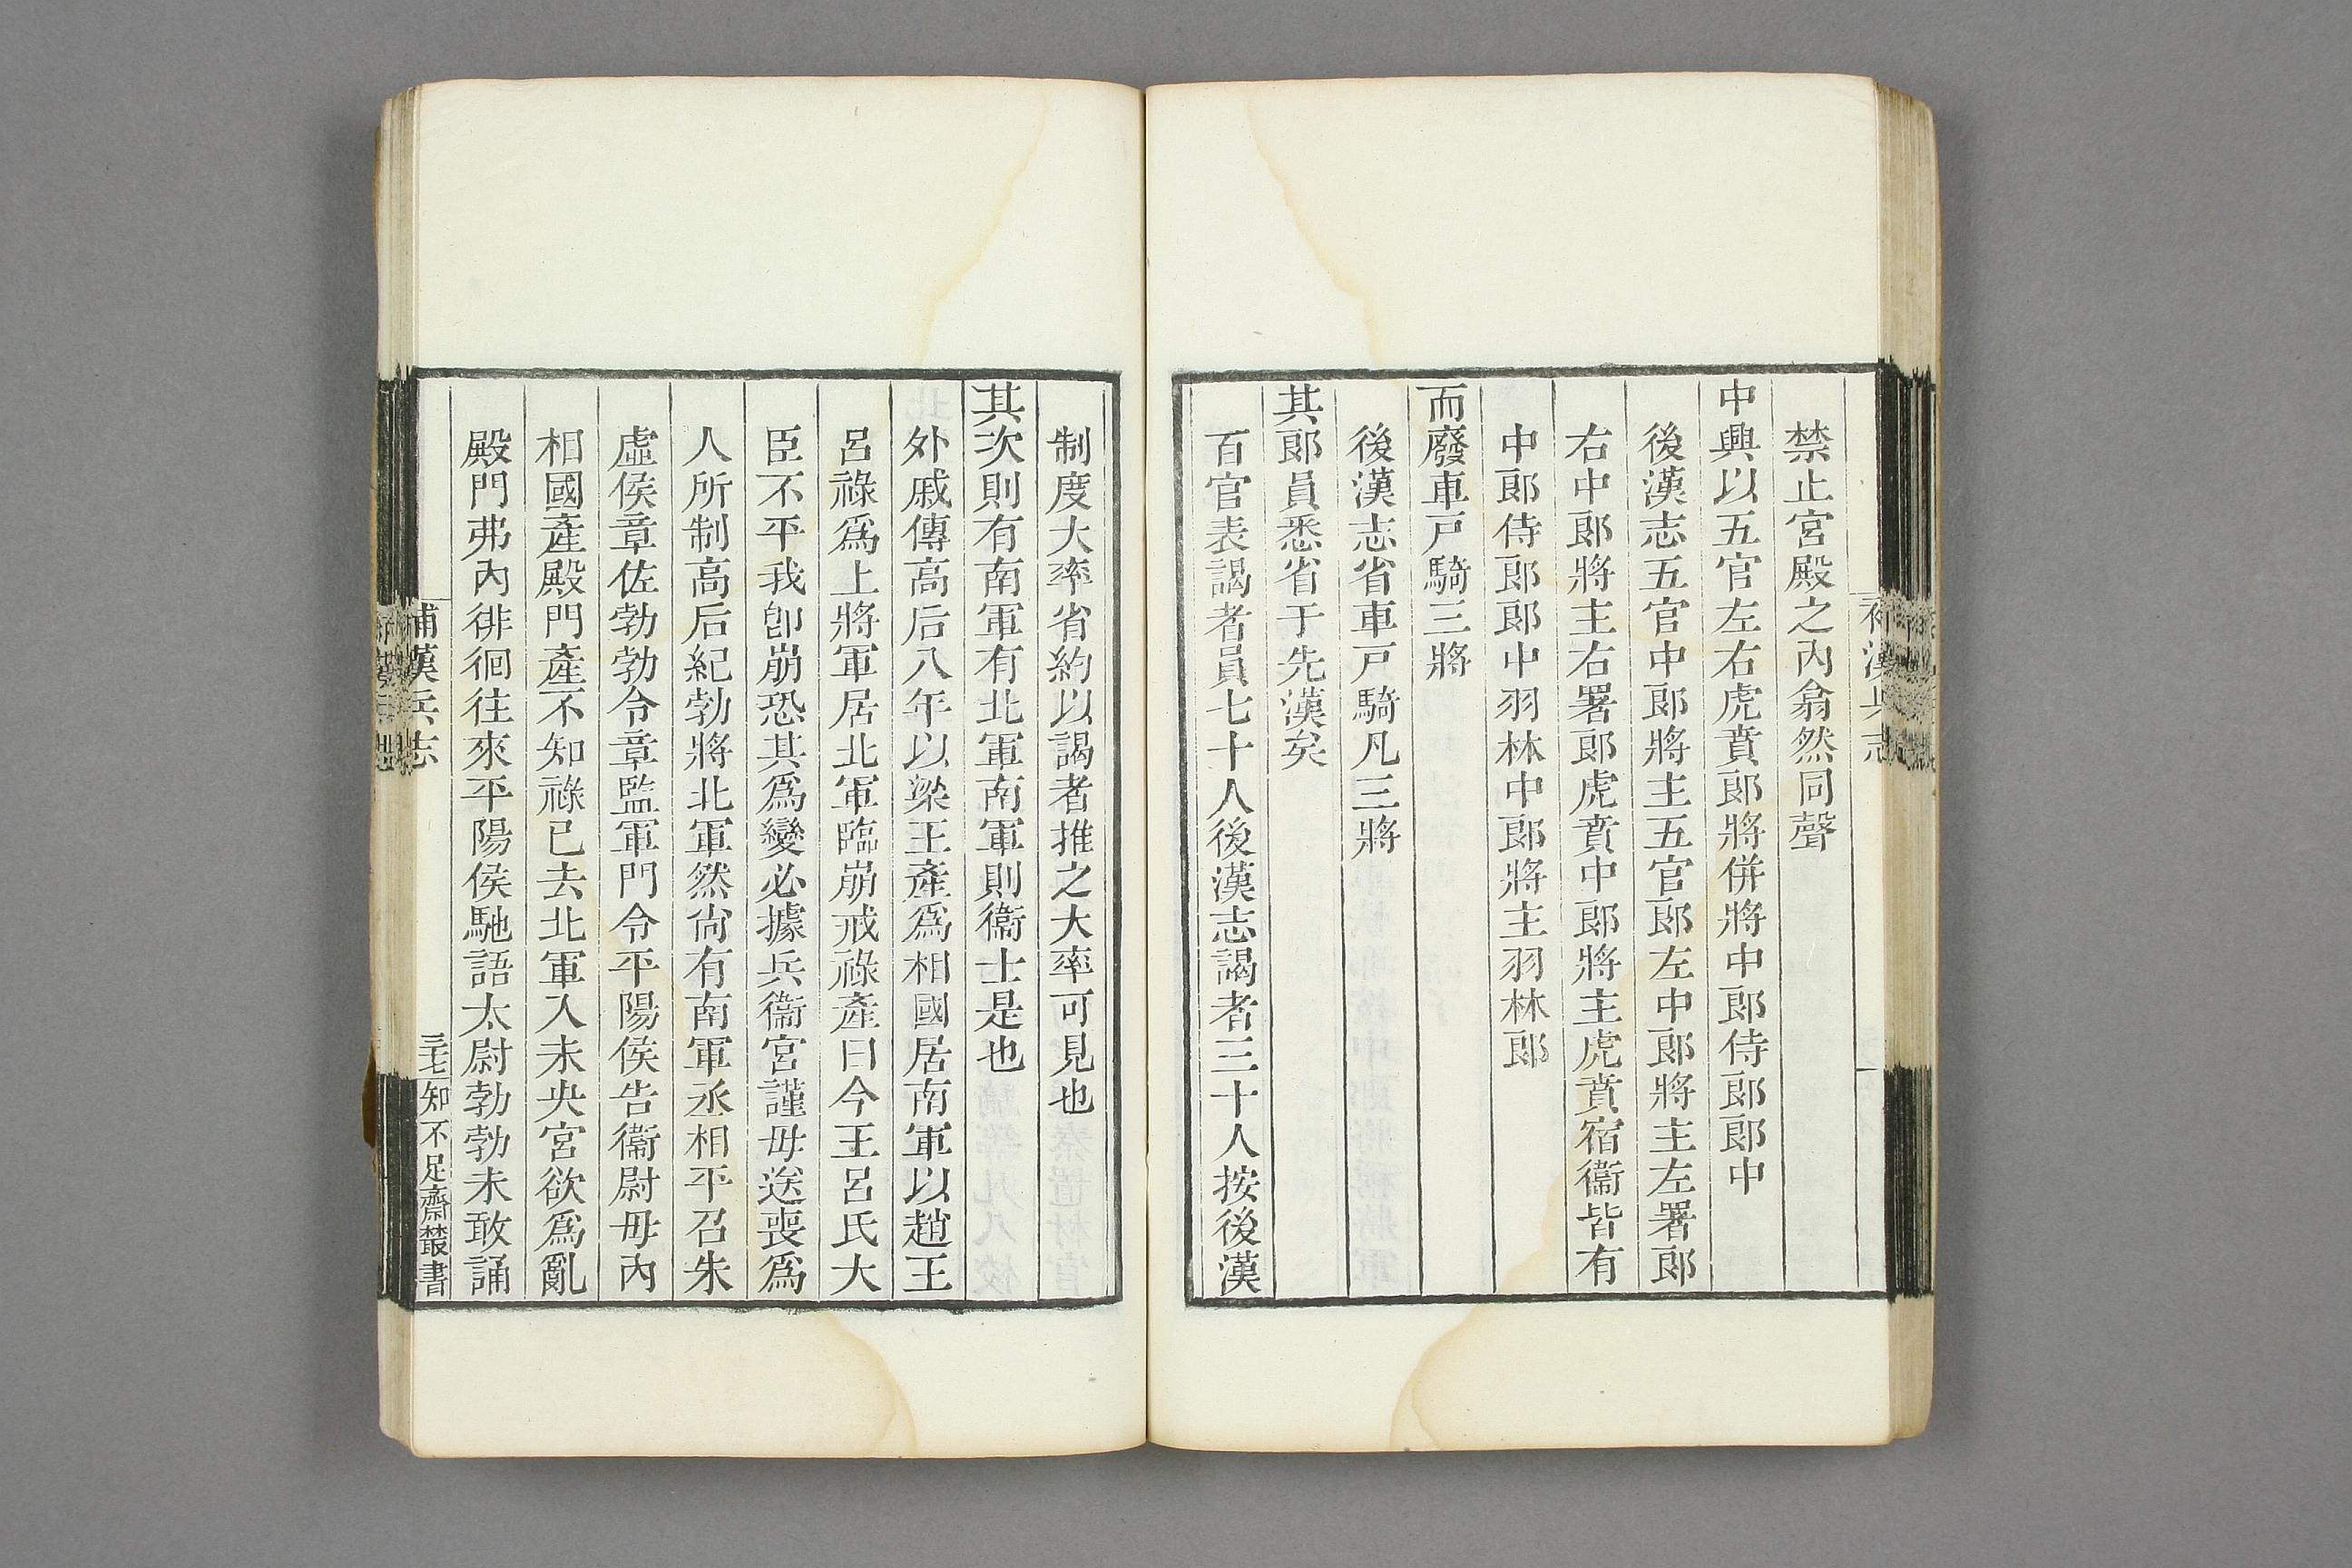 禁止宮殿之內翕然同聲
中興以五官左右虎賁郞將併將中郞侍郞郞中
後漢志五官中郞將主五官郞左中郞將主左署郞
右中郞將主右署郞虎賁中郞將主虎賁宿衞皆有
中郞侍郞郞中羽林中郞將主羽林郞
而廢車戸騎三將
後漢志省車戸騎凡三將
其郞員悉省于先漢矣
百官表謁者員七十人後漢志謁者三十人按後漢
制度大率省約以謁者推之大率可見也
其次則有南軍有北軍南軍則衞士是也
外戚傳高后八年以梁王產爲相國居南軍以趙王
呂祿爲上將軍居北軍臨崩戒祿產曰今王呂氏大
臣不平我卽崩恐其爲變必據兵衞宮謹毋送喪爲
人所制高后紀勃將北軍然尙有南軍丞相平召朱
虛侯章佐勃勃令章監軍門令平陽侯告衞尉毋內
相國產殿門產不知祿已去北軍入未央宮欲爲亂
殿門弗內徘徊往來平陽侯馳語太尉勃勃未敢誦
補漢兵志
知不足齋叢書